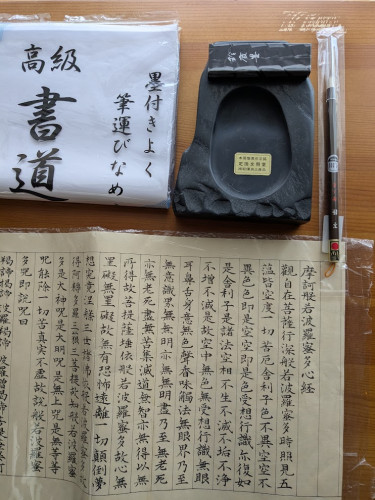 高級
書道
墨付きよく
筆運びなめ
摩訶般若波羅蜜多心經
觀自在菩薩行深般若波羅蜜多時照見五
蘊皆空度一切苦厄舎利子色不異空空不
異色色即是空空即是色受想行識亦復如
是舎利子是諸法空相不生不滅不垢不淨
不增不減是故空中無色無受想行識無眼
耳鼻舌身意無色聲香味觸法無眼界乃至
無意識界無無明亦無無明盡乃至無老死
亦無老死盡無苦集滅道無智亦無得以無
所得故菩提薩埵依般若波羅蜜多故心無
罣礙無罣礙故無有恐怖遠離一切顛倒夢
想究竟涅槃三世諸佛依般若波羅蜜多故
得阿耨多羅三藐三菩提故知般若波羅蜜
多是大神咒是大明咒是無上咒是無等等
咒能除一切苦真實不虛故說般若波羅蜜
多咒即說咒曰
羯諦羯諦 波羅羯諦 波羅僧羯諦